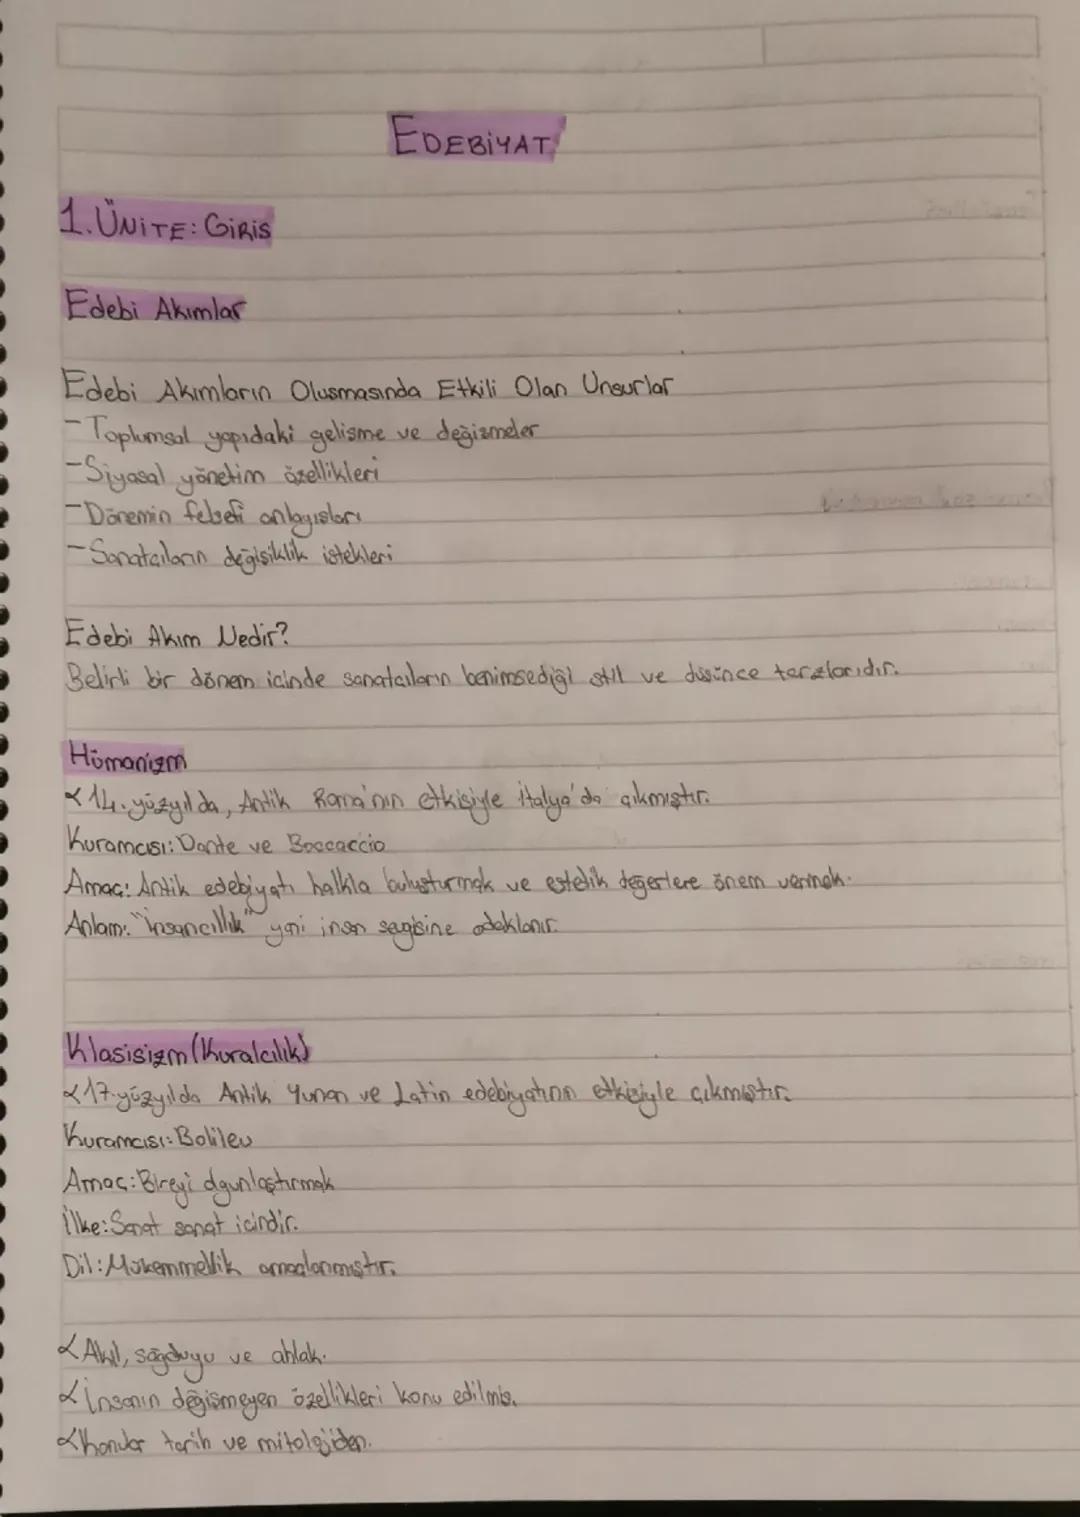 EDEBİYAT
1. ÜNİTE: GİRİS
Edebi Akımlar
Edebi Akımların Olusmasında Etkili Olan Unsurlar
- Toplumsal yapıdaki gelişme ve değişmeler
- Siyasal yönetim özellikleri
- Dönemin felsefi anlayışları
- Sanatcıların değişiklik istekleri
Edebi Akım Nedir?
Belirli bir dönem icinde sanatcıların benimsediği stil ve düsünce tarzlarıdır.
Hümanizm
14. yüzyılda, Antik Roma'nın etkisiyle İtalya'da çıkmıştır.
Kuramcısı: Dante ve Boccaccio
Amaç: Antik edebiyatı halkla buluşturmak ve estetik değerlere önem vermek.
Anlam: "İnsancıllık" yani insan sevgisine odaklanır.
Klasisizm (Kuralcılık)
17. yüzyılda Antik Yunan ve Latin edebiyatının etkisiyle çıkmıştır.
Kuramcısı: Bolileu
Amaç: Bireyi olgunlaştırmak
İlke: Sanat sanat icindir.
Dil: Mükemmellik amaclanmıştır.
Akıl, sağduyu ve ahlak.
İnsanın değişmeyen özellikleri konu edilmis.
Konular tarih ve mitolojiden.